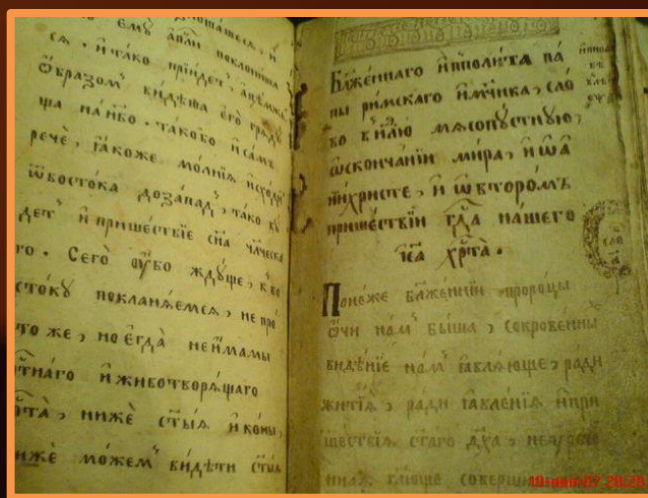 емъ апⷭ҇ли поклониша
сѧ. и҆ тако прїидетъ, а҆цемже
ѻ҆бразомъ видѣша є҆го грѧдꙋ
ща на нб҃о. таково и҆ самъ
речѐ, ꙗ҆коже молнїѧ исходи
ѿ востока до запад, тако бꙋ
детъ и҆ пришествїе сн҃а чл҃ческа
го. Сего̀ ᲂу҆бо ждꙋще, к во
стокꙋ покланѧемсѧ, не про
то же, но є҆гда̀ не и҆мамы
тнаго и҆ животворѧщаго
крⷭ҇та̀, нижѐ ст҃ы́ѧ и҆коны,
ниже можемъ видѣти ст҃ы́ѧ
Бл҃женнаго и҆пполита па
пы римскаго и҆ мч҃ика, сло
во в нлⷣю мѧсопꙋстнꙋю,
ѡ҆ скончанїи мира, и҆ ѡ҆ а
нтихристе, и҆ ѡ҆ второмъ
пришествїи гдⷭ҇а нашего
і҆са хрⷭ҇та̀.
Понеже бл҃женнїи пророцы
ѻ҆чи намъ быша, сокровенны
видѣнїе намъ ꙗ҆влѧюще, ради
житїѧ, ради ꙗ҆вленїѧ и҆ при
шествїѧ ст҃а́го дх҃а,
совершн